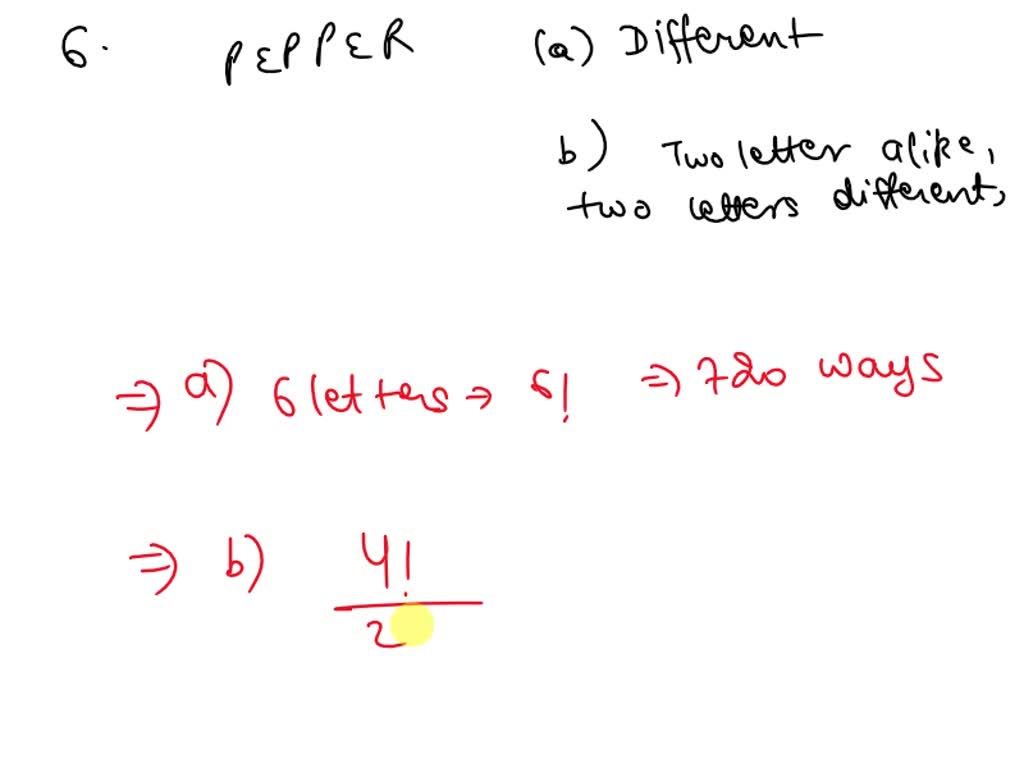 6. PEPPER (a) Different
b) Two letter alike,
two letters different,
⇒ a) 6 letters → 6! ⇒ 720 ways
⇒ b) 4!
2